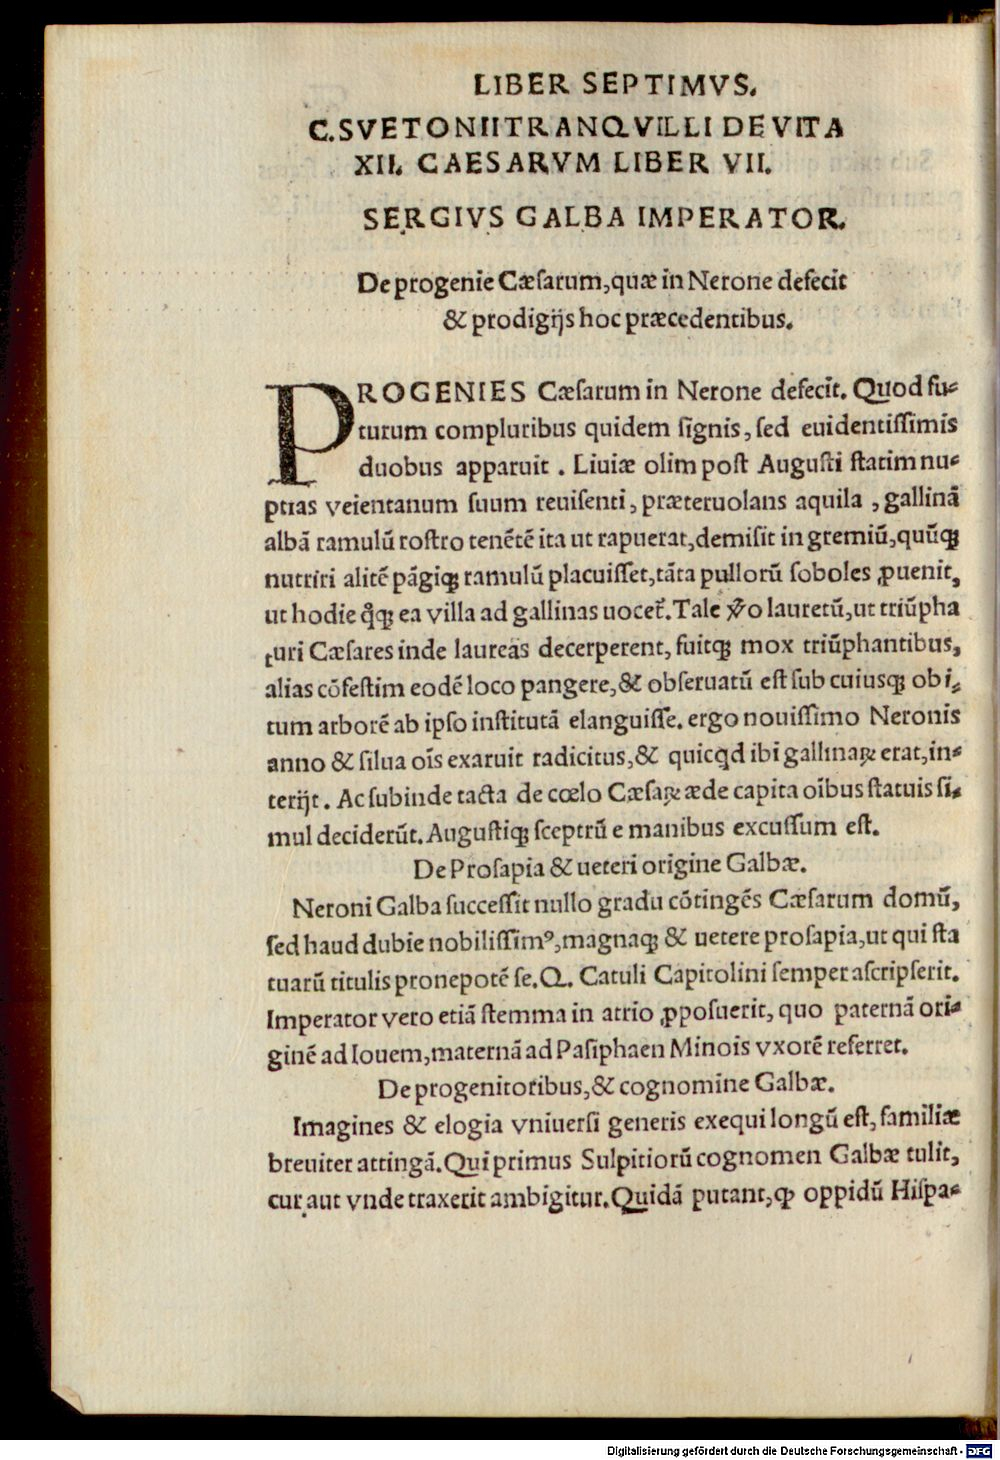 LIBER SEPTIMVS.
C.SVETONII TRANQVILLI DE VITA
XII. CAESARVM LIBER VII.
SERGIVS GALBA IMPERATOR.
De progenie Cæſarum,quæ in Nerone defecit
& prodigijs hoc præcedentibus.
PROGENIES Cæſarum in Nerone defecit. Quod fu-
turum compluribus quidem ſignis, ſed euidentiſſimis
duobus apparuit . Liuiæ olim poſt Auguſti ſtatim nu-
ptias veientanum ſuum reuiſenti, præteruolans aquila , gallinã
albã ramulũ roſtro tenẽtẽ ita ut rapuerat,demiſit in gremiũ,quũqꝫ
nutriri alitẽ pãgiqꝫ ramulũ placuiſſet,tãta pullorũ ſoboles ꝓuenit,
ut hodie q̃qꝫ ea villa ad gallinas uocet̃. Tale ꝟo lauretũ,ut triũpha
turi Cæſares inde laureas decerperent, fuitqꝫ mox triũphantibus,
alias cõfeſtim eodẽ loco pangere,& obſeruatũ eſt ſub cuiusqꝫ obi-
tum arborẽ ab ipſo inſtitutã elanguiſſe. ergo nouiſſimo Neronis
anno & ſilua oĩs exaruit radicitus,& quicq̇d ibi gallinaꝝ erat,in-
terijt. Ac ſubinde tacta de cœlo Cæſaꝝ æde capita oĩbus ſtatuis ſi-
mul deciderũt. Auguſtiqꝫ ſceptrũ e manibus excuſſum eſt.
De Proſapia & ueteri origine Galbæ.
Neroni Galba ſucceſſit nullo gradu cõtingẽs Cæſarum domũ,
ſed haud dubie nobiliſſimꝰ,magnaqꝫ & uetere proſapia,ut qui ſta
tuarũ titulis pronepotẽ ſe.Q. Catuli Capitolini ſemper aſcripſerit.
Imperator vero etiã ſtemma in atrio ꝓpoſuerit, quo paternã ori-
ginẽ ad Iouem,maternã ad Paſiphaen Minois vxorẽ referret.
De progenitoribus,& cognomine Galbæ.
Imagines & elogia vniuerſi generis exequi longũ eſt, familiæ
breuiter attingã. Qui primus Sulpitiorũ cognomen Galbæ tulit,
cur aut vnde traxerit ambigitur. Quidã putant, ꝙ oppidũ Hiſpa-
Digitalisierung gefördert durch die Deutsche Forschungsgemeinschaft - DFG